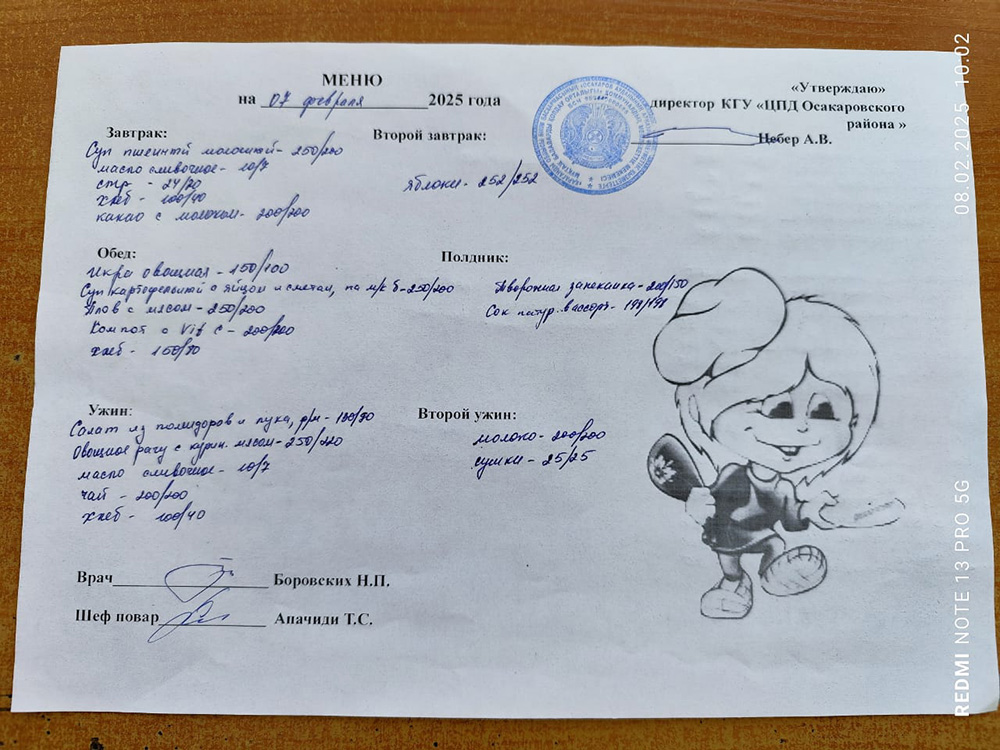 МЕНЮ
на 07 февраля 2025 года
«Утверждаю»
директор КГУ «ЦПД Осакаровского
района »
Цебер А.В.
Завтрак:
Суп пшенный молочный - 250/200
масло сливочное - 10/7
сыр - 24/20
хлеб - 100/40
какао с молоком - 200/200
Второй завтрак:
яблоки - 252/252
Обед:
Икра овощная - 150/100
Суп картофельный с яйцом и сметан, на м/к б - 250/200
Плов с мясом - 250/200
Компот с Vit C - 200/200
хлеб - 150/80
Полдник:
Творожная запеканка - 200/150
Сок натур. в ассорт - 198/198
Ужин:
Салат из помидоров и лука, р/м - 130/90
Овощное рагу с курин. мясом - 250/220
масло сливочное - 10/7
чай - 200/200
хлеб - 100/40
Второй ужин:
молоко - 200/200
сушки - 25/25
Врач Боровских Н.П.
Шеф повар Апачиди Т.С.
REDMI NOTE 13 PRO 5G
08.02.2025 10:02